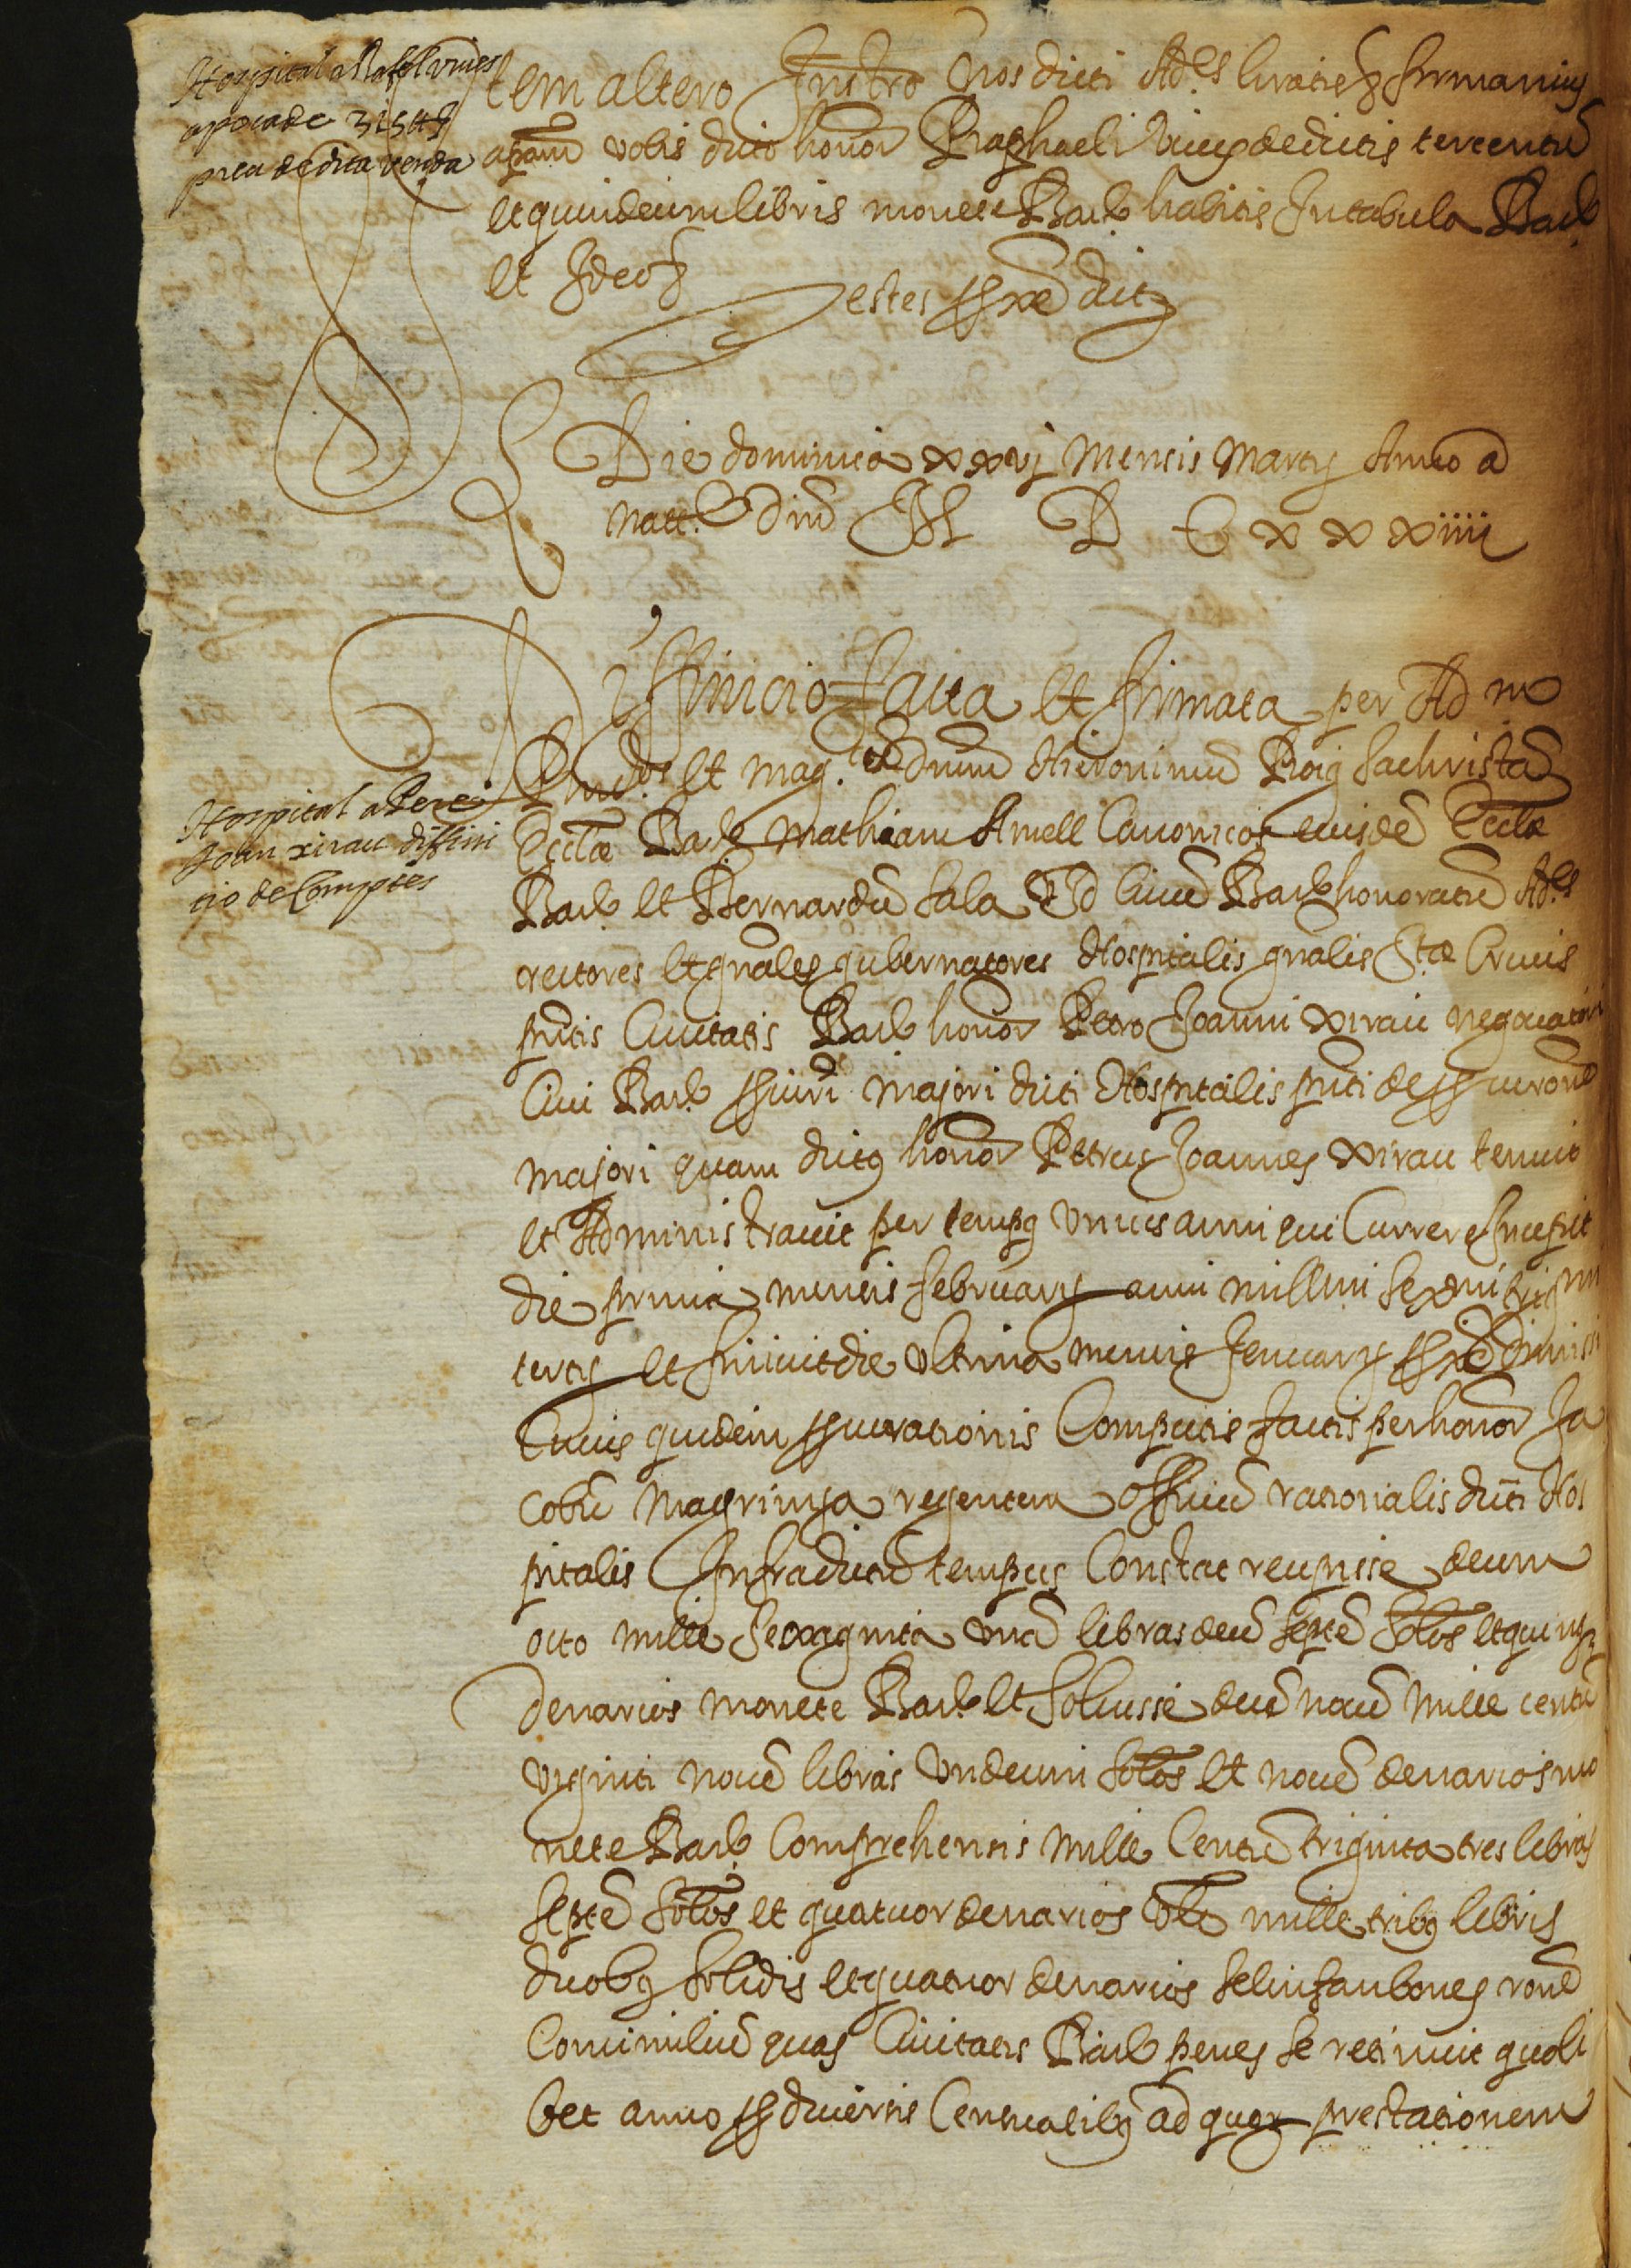 Hospital a Rafel vives
apoca de 315 ll
preu de dita venda
Item altero Instro Nos dicti Ad.es gratis & firmamus
apam vobis dicto honor Raphaeli vives de dictis tercentu
et quindecim libris monete Barb habitis In tabula Barb
et Ideo &
Testes sse dict
Die dominica xxvj Mensis Martij Anno a
Natt. Dni M D C xxxiiii
Diffinicio facta et firmata per Ad m
Rndos et Mag. cos dnum Hieronimu Roig Sachrista
Eccle Barb Mathiam Amell Canonicos eiusde Eccle
Barb et Bernardu Sala Cive Barb honoratu Ad.es
rectores et gnales gubernatores Hospitalis gnalis Ste Crucis
pntis Civitatis Barb honor Petro Joanni Xirau negociatori
Civi Barb sindi majori dicti Hospitalis pnti de
majori quam dictus honor Petrus Joannes Xirau tenuit
et Administravit per tempus unius anni qui Currere Incepit
die prima mensis februarij anni millmi
tertij et finivit die ultima mensis Januarij
Cuius quidem Computis factis per honor Ja
cobu Magrinya regentem officiu rationalis dicti Hos
pitalis Infradictu tempus Constat recepisse decem
octo mille sexaginta una libras dece septe solos et quinque
denarios monete Barb et solvisse dece nove mille centu
viginti nove libras undecim solos et nove denarios mo
nete Barb Comprehensis mille Centu triginta tres libras
septe solos et quatuor denarios mille tribus libris
duobus solidis et quatuor denarios
quas Civitatis Barb penes se retinuit quoli
bet anno diversis Censualibus ad quor prestationem